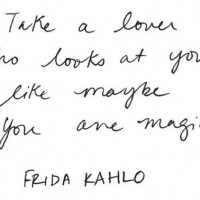 Take a lover
ho looks at you
like maybe
you are magic
FRIDA KAHLO